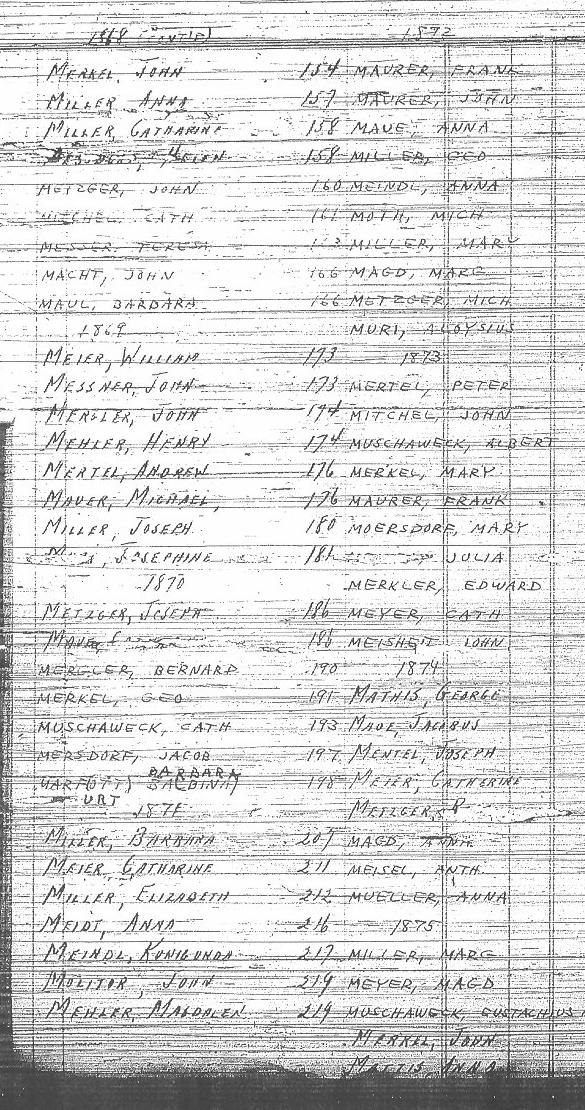 1868
MERKEL, JOHN 154
MILLER, ANNA 157
MILLER, CATHARINE 158
HELEN 158
METZGER, JOHN 160
MITCHEL, CATH 161
MESSER, TERESA 163
MACHT, JOHN 166
MAUL, BARBARA 166
1869
MEIER, WILLIAM 173
MESSNER, JOHN 173
MERGLER, JOHN 174
MEHLER, HENRY 174
MERTEL, ANDREW 176
MAUER, MICHAEL, 176
MILLER, JOSEPH 180
JOSEPHINE 181
1870
METZGER, JOSEPH 186
186
MERGLER, BERNARD 190
MERKEL, GEO 191
MUSCHAWECK, CATH 193
MERSDORF, JACOB 197
BARBARA
BALBINA) 198
URT
1871
MILLER, BARBARA 207
MEIER, CATHARINE 211
MILLER, ELIZABETH 212
MEIDT, ANNA 216
MEINDL, KONIGUNDA 217
MOLITOR, JOHN 219
MEHLER, MAGDALEN 219
1872
MAURER, FRANK
MAURER, JOHN
MAUE, ANNA
MILLER, GEO
MEINDL, ANNA
MOTH, MICH
MILLER, MARY
MAGD, MARG
METZGER, MICH
MURI, ALOYSIUS
1873
MERTEL, PETER
MITCHEL, JOHN
MUSCHAWECK, ALBERT
MERKEL, MARY
MAURER, FRANK
MOERSDORF, MARY
JULIA
MERKLER, EDWARD
MEYER, CATH
JOHN
1874
MATHIS, GEORGE
MAUE, JACOBUS
MENTEL, JOSEPH
MEIER, CATHERINE
METZGER, P
MAGD, ANNA
MEISEL, ANTH.
MUELLER, ANNA
1875
MILLER, MARG
MEYER, MAGD
MUSCHAWECK, EUSTACHIUS
MERKEL, JOHN
MATTIS, ANNA